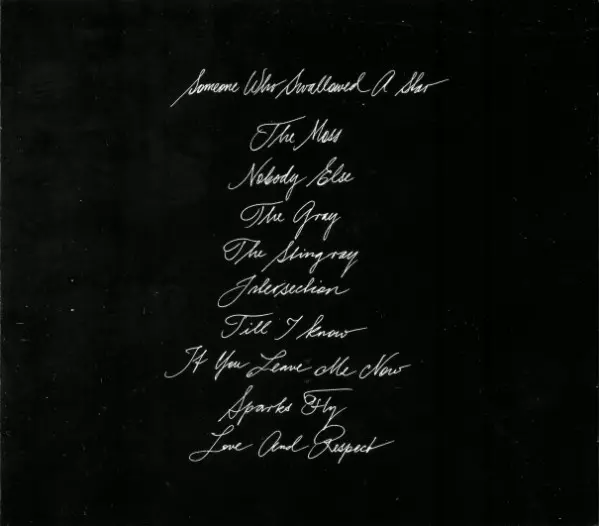 Someone Who Swallowed A Star
The Moss
Nobody Else
The Gray
The Stingray
Intersection
Till I know
If You Leave Me Now
Sparks Fly
Love And Respect